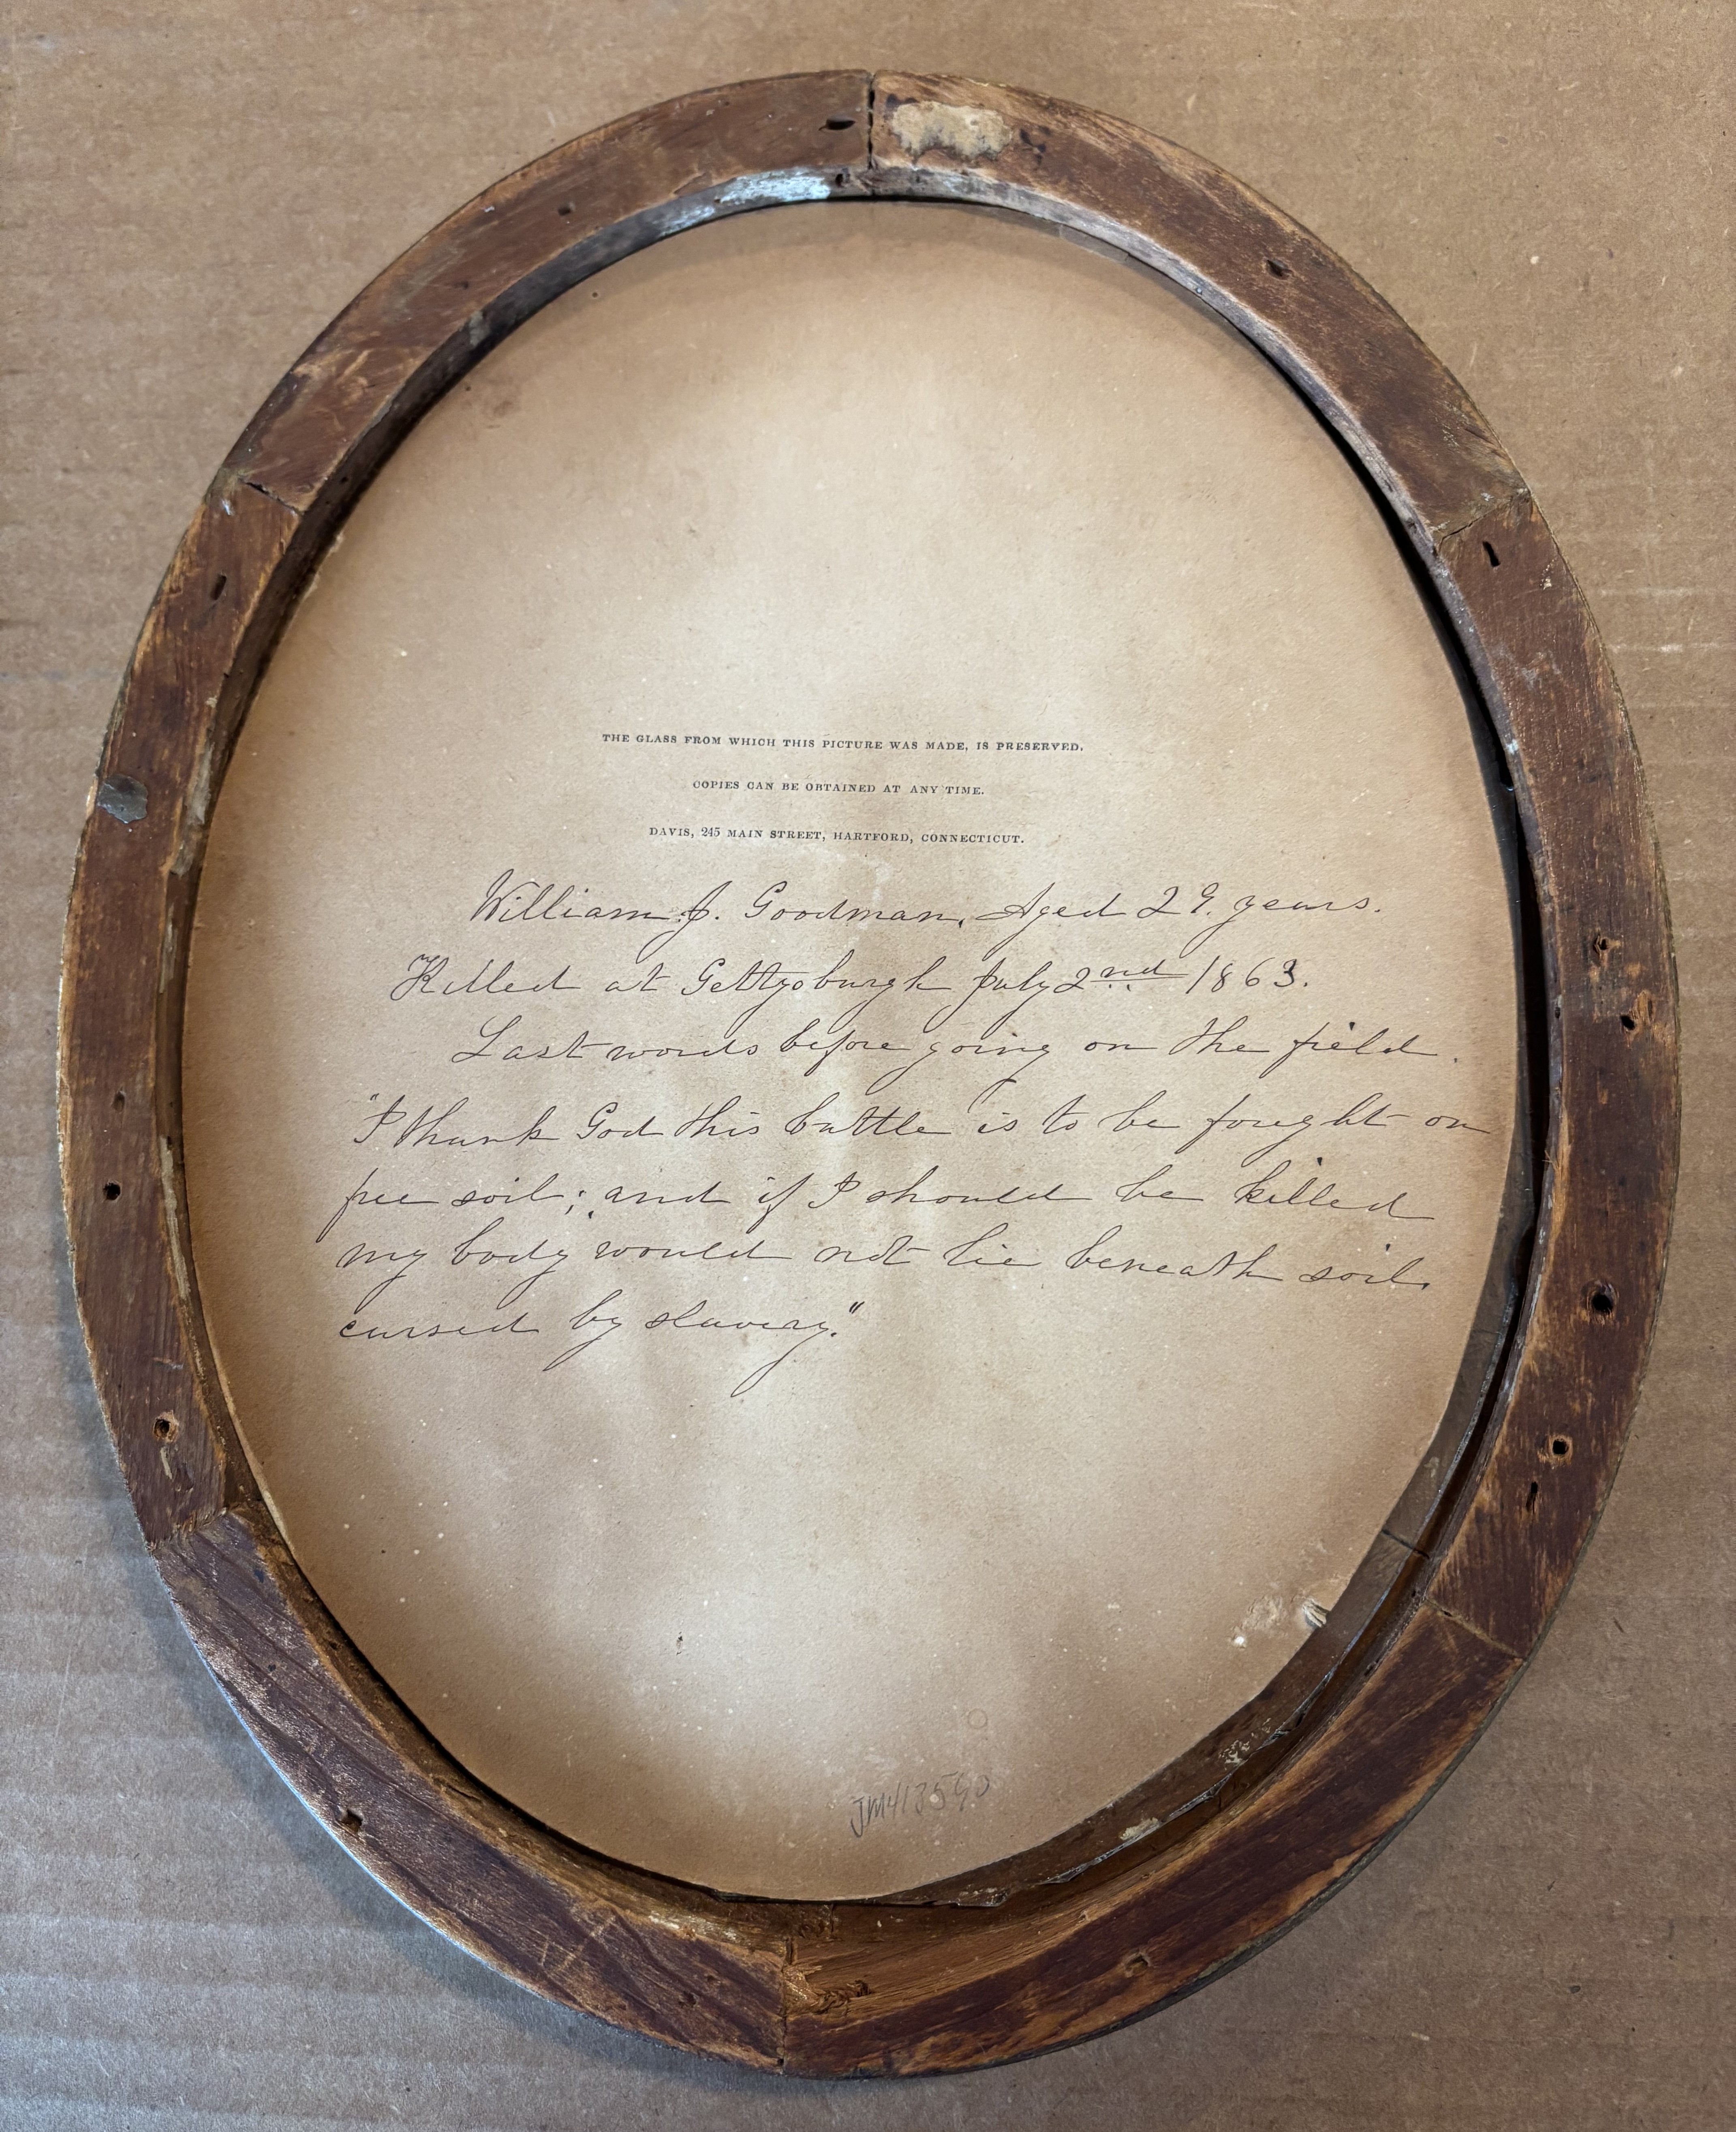 THE GLASS FROM WHICH THIS PICTURE WAS MADE, IS PRESERVED.
COPIES CAN BE OBTAINED AT ANY TIME.
DAVIS, 245 MAIN STREET, HARTFORD, CONNECTICUT.
William J. Goodman, Aged 29. years.
Killed at Gettysburgh July 2nd 1863.
Last words before going on the field.
"I thank God this battle is to be fought on
free soil; and if I should be killed
my body would not lie beneath soil
cursed by slavery."